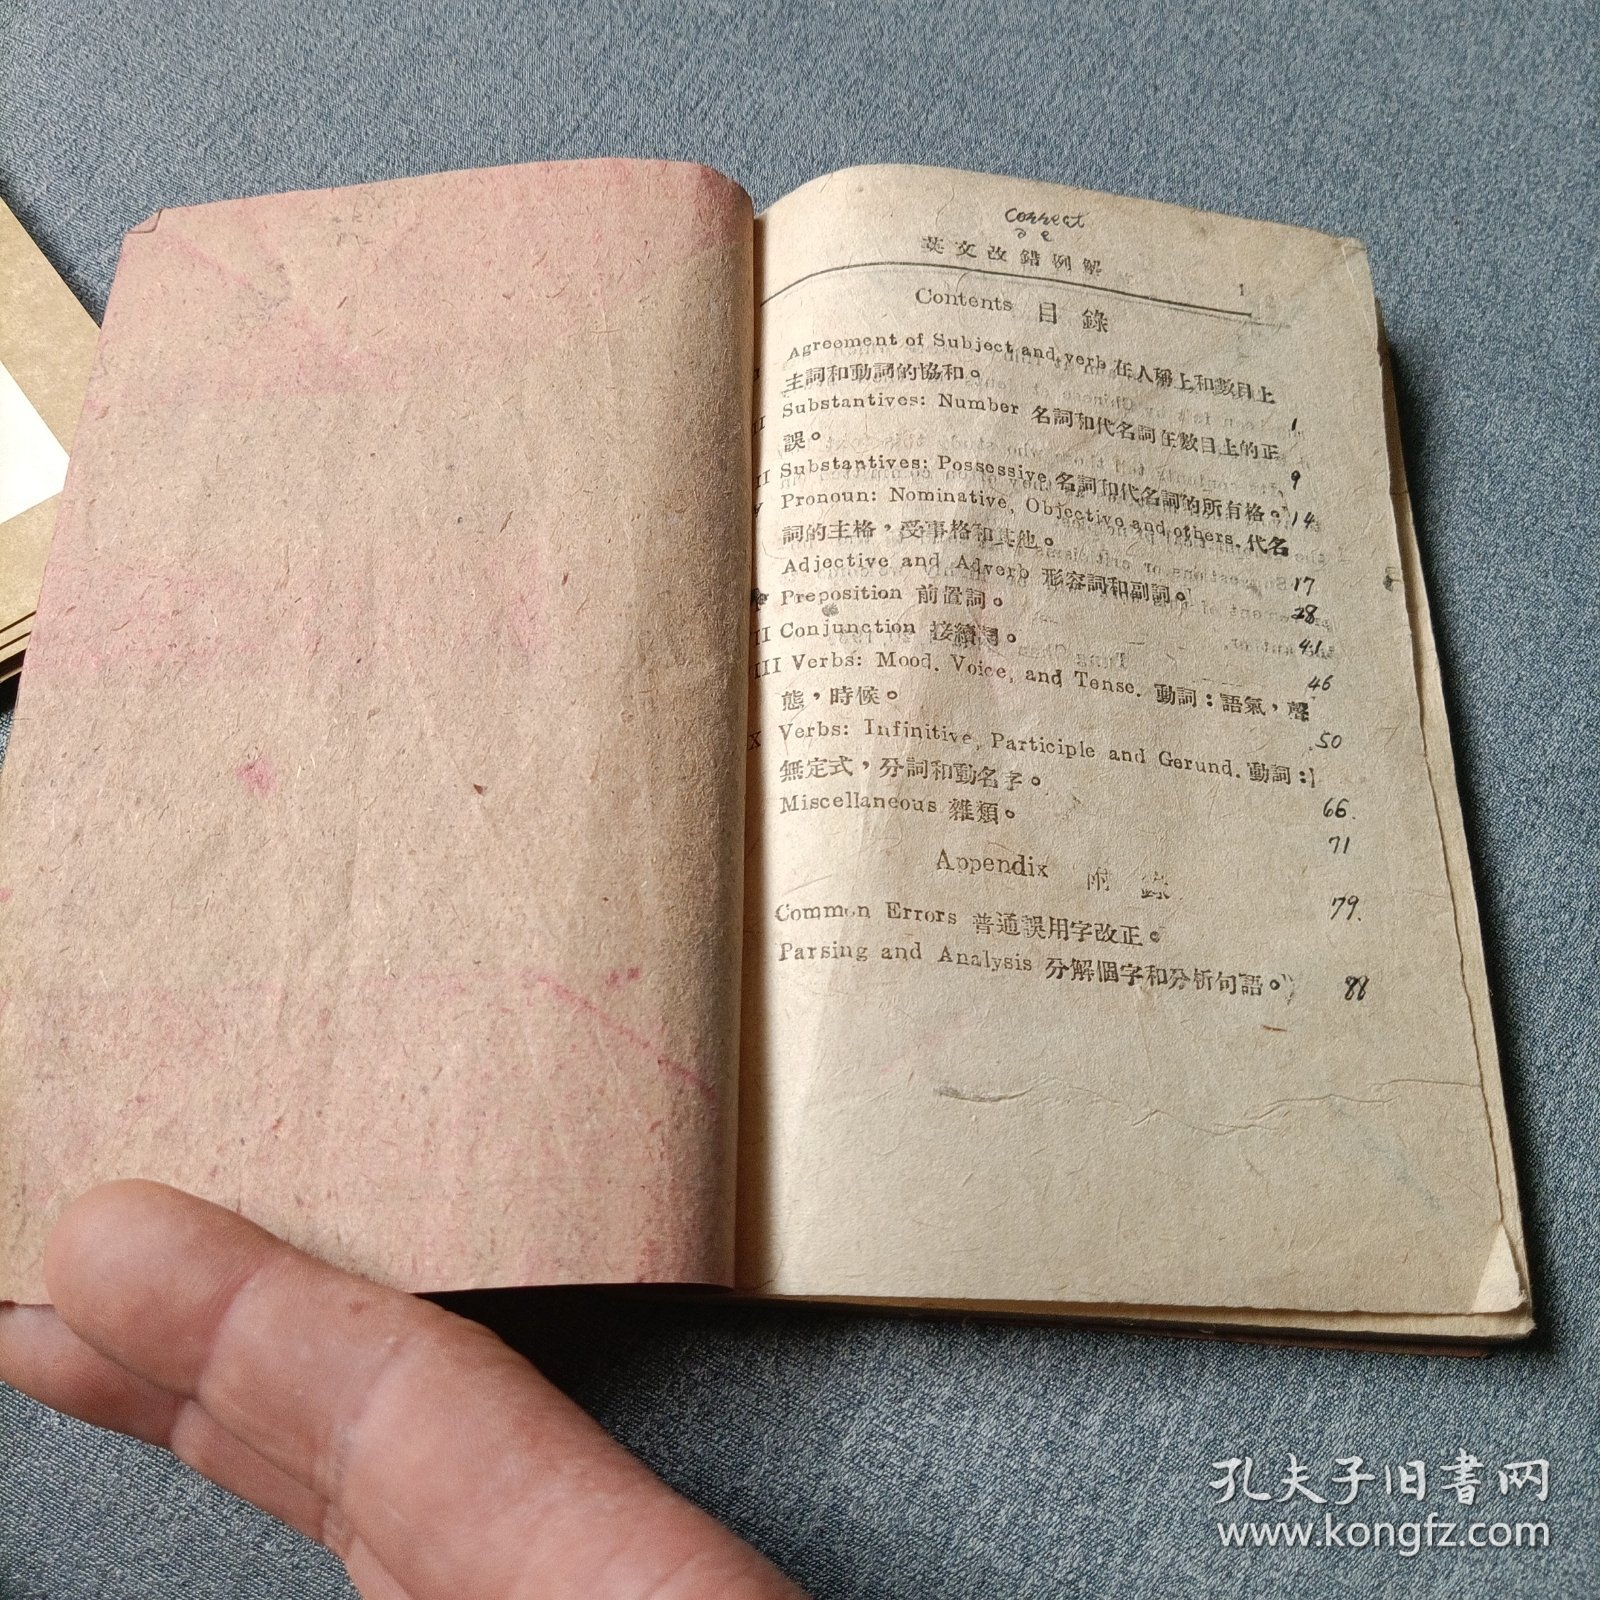 correct
英文改錯例解
1
Contents 目錄
Agreement of Subject and verb 在人稱上和數目上
主詞和動詞的協和。 1
II Substantives: Number 名詞和代名詞在數目上的正
誤。 9
II Substantives: Possessive 名詞和代名詞的所有格。 14
V Pronoun: Nominative, Objective and others. 代名
詞的主格，受事格和其他。 17
Adjective and Adverb 形容詞和副詞。 28
Preposition 前置詞。 41
II Conjunction 接續詞。 46
III Verbs: Mood, Voice, and Tense. 動詞：語氣，聲
態，時候。 50
X Verbs: Infinitive, Participle and Gerund. 動詞：
無定式，分詞和動名字。 66
Miscellaneous 雜類。 71
Appendix 附錄
Common Errors 普通誤用字改正。 79
Parsing and Analysis 分解個字和分析句語。 88
孔夫子旧書网
www.kongfz.com